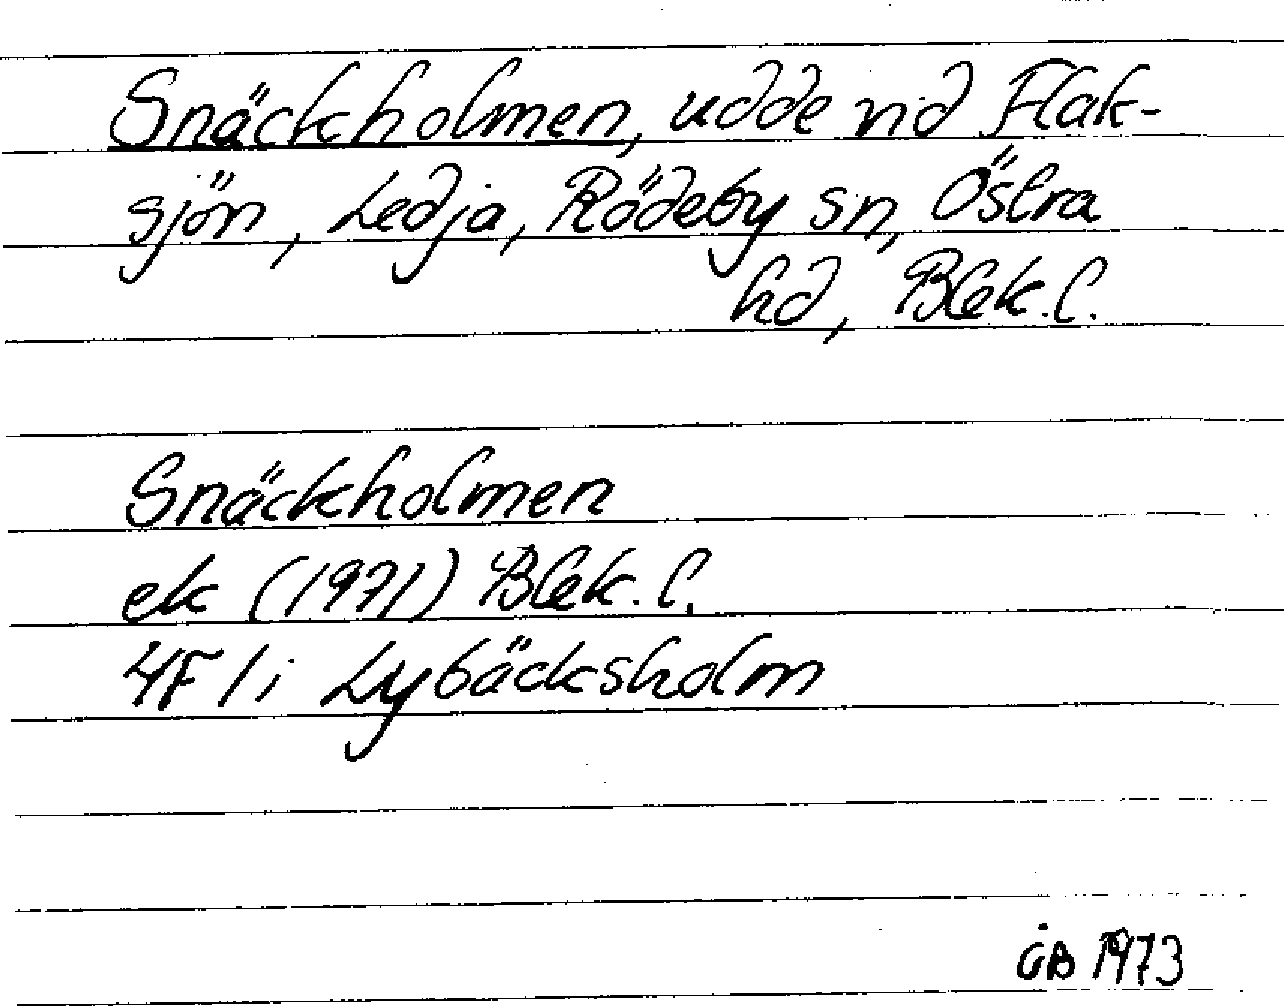 Snäckholmen, udde vid Flak-
sjön, Ledja, Rödeby sn, Östra
hd, Blek. l.
Snäckholmen
ek (1971) Blek. l.
4F 1i Lybäcksholm
GB 1973